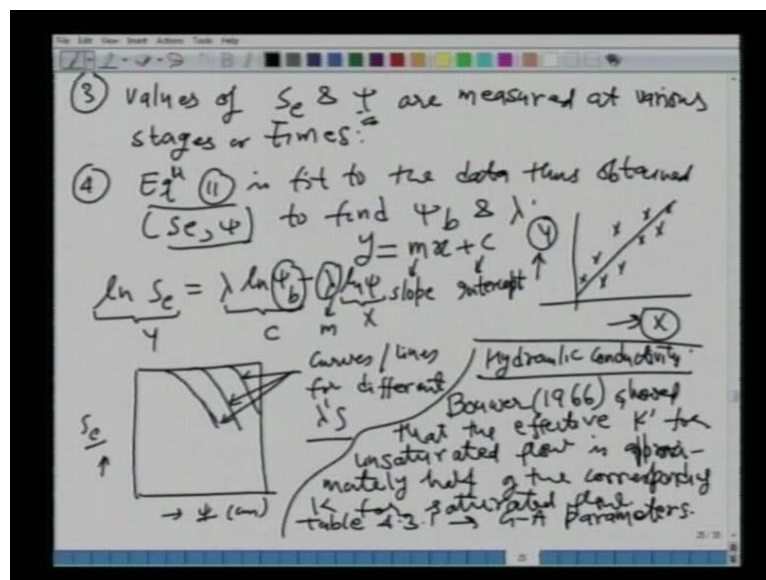 File Edit View Insert Actions Tools Help
③ values of Se & ψ are measured at various
stages or times.
④ Eqⁿ ⑪ is fit to the data thus obtained
(Se, ψ) to find ψb & λ.
y = mx + c
slope intercept
Y
X
ln Se = λ ln ψb - λ ln ψ
Y C m X
Se
→ ψ (cm)
Curves/lines
for different
λ's
Hydraulic Conductivity.
Bouwer (1966) showed
that the effective 'K' for
unsaturated flow is approxi-
mately half of the corresponding
K for saturated flow
Table 4.3.1 → G-A parameters.
25/25
25